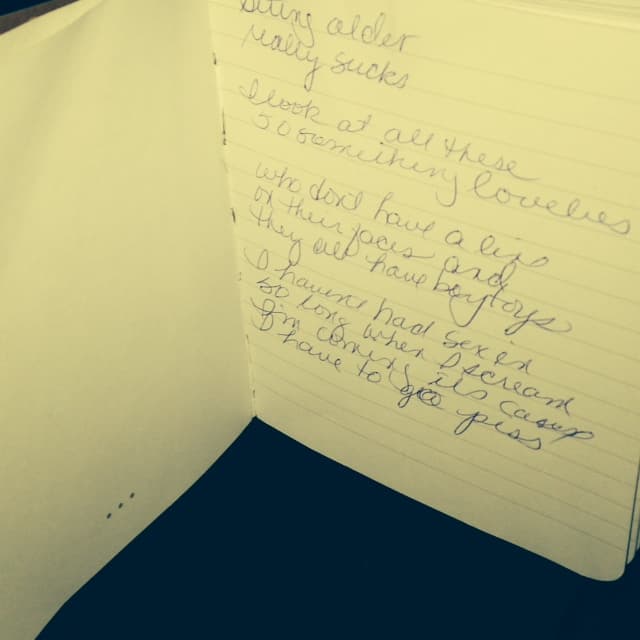 older
really sucks
I look at all these
50 something lovelies
who don't have a line
on their faces and
they all have boytoys
I havent had sex in
so long when I scream
I'm coming its
I have to go piss